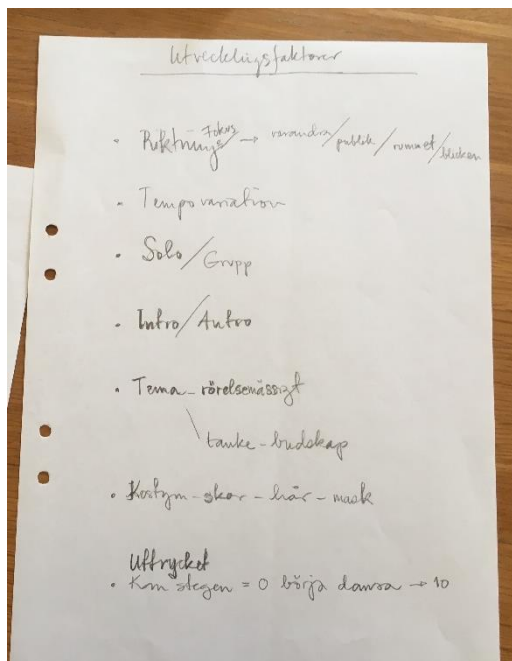 Utvecklingsfaktorer
• Riktnings/Fokus → varandra/publik/rummet/blicken
• Tempovariation
• Solo/Grupp
• Intro/Autro
• Tema - rörelsemässigt
tanke - budskap
• Kostym - skor - hår - mask
Uttrycket
• Kan stegen = 0 börja dansa → 10